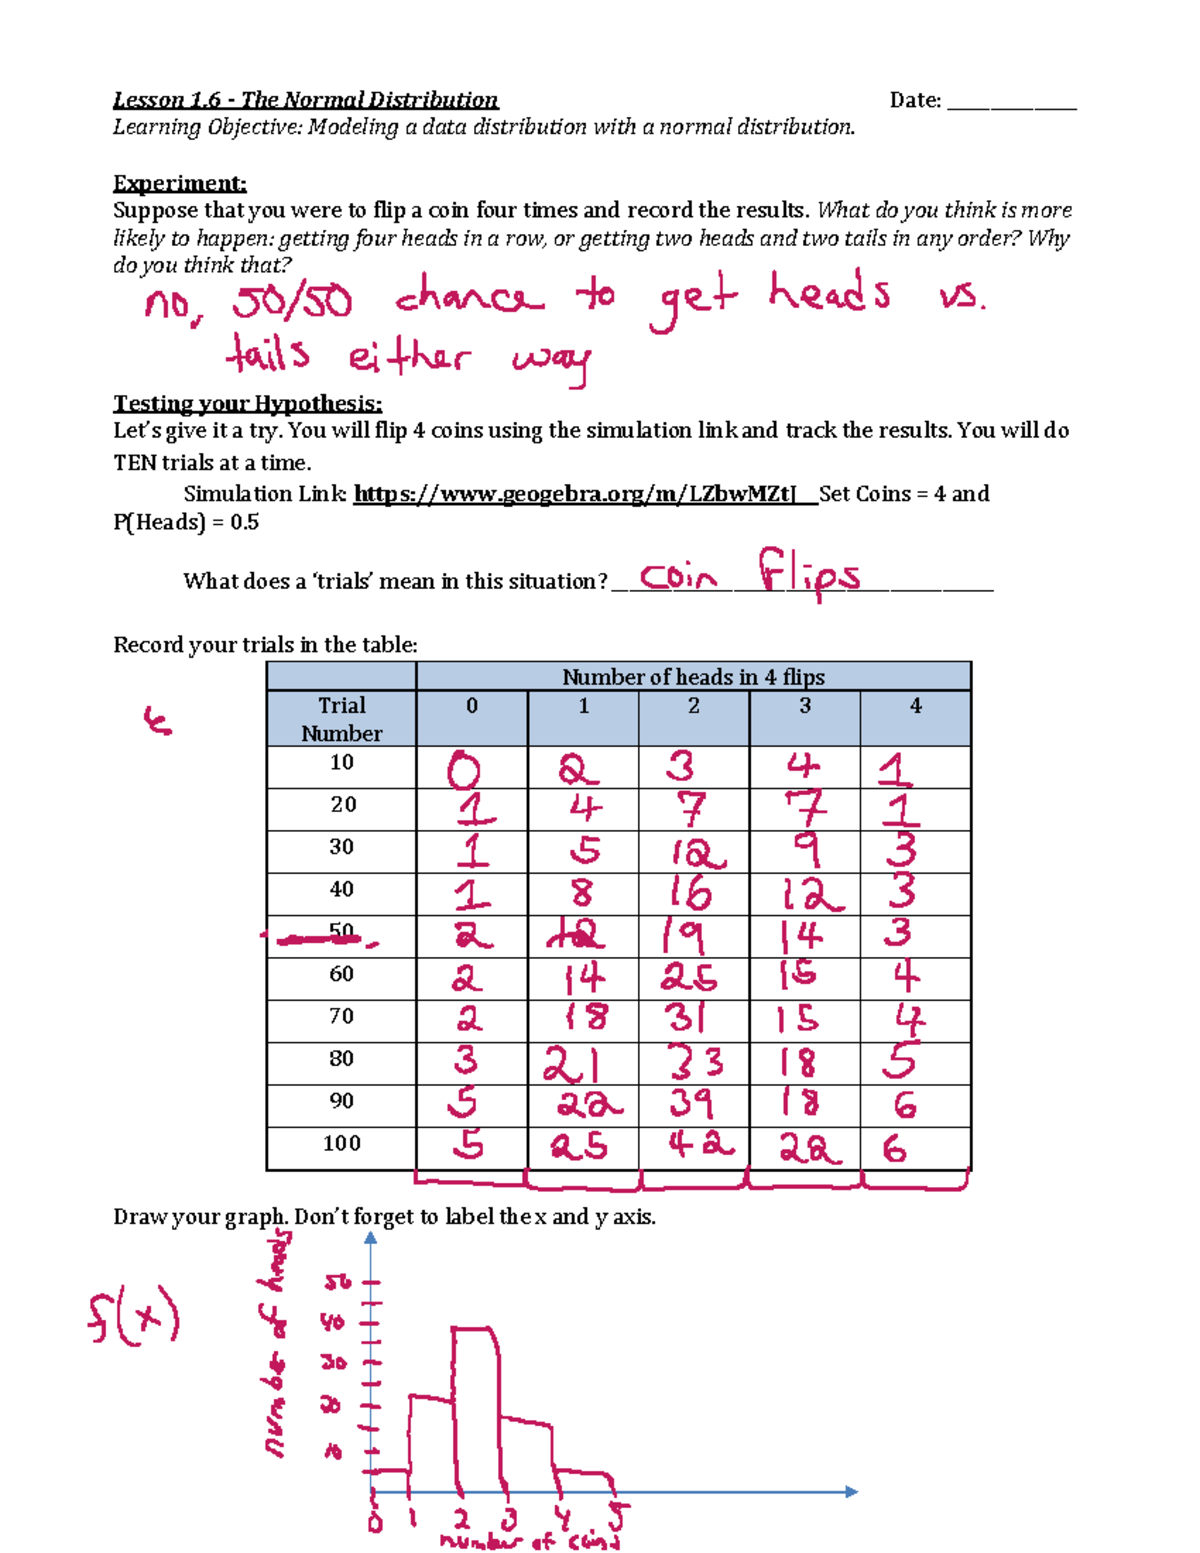 Lesson 1.6 - The Normal Distribution Date: ____________
Learning Objective: Modeling a data distribution with a normal distribution.
Experiment:
Suppose that you were to flip a coin four times and record the results. What do you think is more
likely to happen: getting four heads in a row, or getting two heads and two tails in any order? Why
do you think that?
no, 50/50 chance to get heads vs.
tails either way
Testing your Hypothesis:
Let's give it a try. You will flip 4 coins using the simulation link and track the results. You will do
TEN trials at a time.
Simulation Link: https://www.geogebra.org/m/LZbwMZtJ Set Coins = 4 and
P(Heads) = 0.5
What does a 'trials' mean in this situation? coin flips
Record your trials in the table:
Number of heads in 4 flips
Trial Number 0 1 2 3 4
10 0 2 3 4 1
20 1 4 7 7 1
30 1 5 12 9 3
40 1 8 16 12 3
50 2 12 19 14 3
60 2 14 25 15 4
70 2 18 31 15 4
80 3 21 33 18 5
90 5 22 39 18 6
100 5 25 42 22 6
Draw your graph. Don't forget to label the x and y axis.
f(x)
number of heads
50
40
30
0 1 2 3 4 5
number of coins